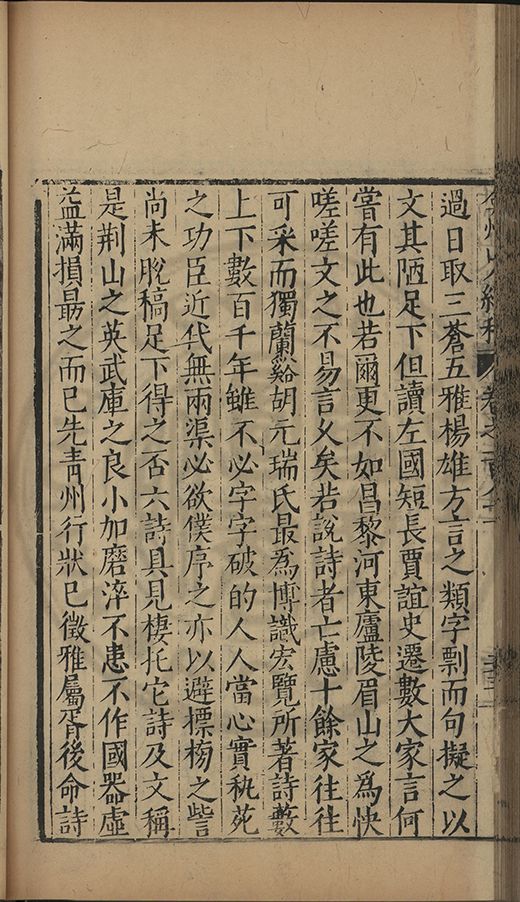 弇州山人續稿 卷之一百八十二
過日取三蒼五雅楊雄方言之類字剽而句擬之以
文其陋足下但讀左國短長賈誼史遷數大家言何
嘗有此也若爾更不如昌黎河東廬陵眉山之為快
嗟嗟文之不易言久矣若說詩者亡慮十餘家往往
可采而獨蘭谿胡元瑞氏最為博識宏覽所著詩藪
上下數百千年雖不必字字破的人人當心實秇苑
之功臣近代無兩渠必欲僕序之亦以避摽榜之訾
尚未脫稿足下得之否六詩具見棲托它詩及文稱
是荆山之英武庫之良小加磨淬不患不作國器虛
益滿損勗之而已先青州行狀已徵雅屬胥後命詩